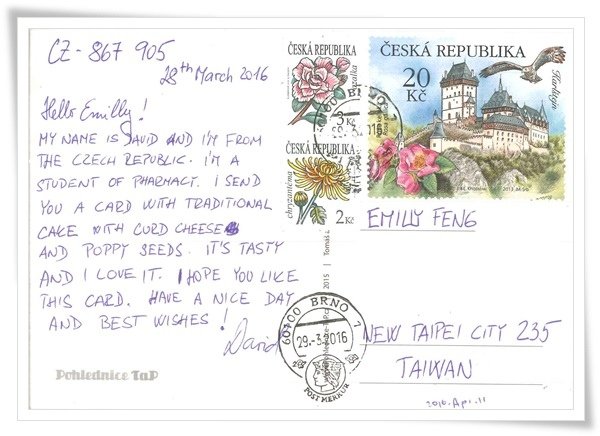 CZ - 867 905
28th March 2016
Hello Emilly!
MY NAME IS DAVID AND I'M FROM
THE CZECH REPUBLIC. I'M A
STUDENT OF PHARMACY. I SEND
YOU A CARD WITH TRADITIONAL
CAKE WITH CURD CHEESE
AND POPPY SEEDS. IT'S TASTY
AND I LOVE IT. I HOPE YOU LIKE
THIS CARD. HAVE A NICE DAY
AND BEST WISHES!
David
Pohlednice TaP
ČESKÁ REPUBLIKA
3 Kč
ČESKÁ REPUBLIKA
chryzantéma
2 Kč
ČESKÁ REPUBLIKA
20 Kč
Karlštejn
60700 BRNO 7
29.-3.2016
POST MERKUR
EMILY FENG
NEW TAIPEI CITY 235
TAIWAN
2016. Apr. 11